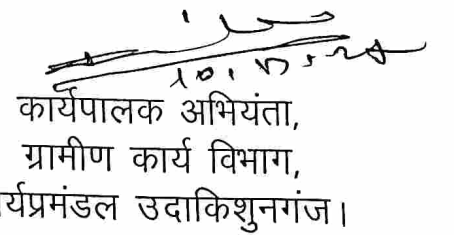 कार्यपालक अभियंता,
ग्रामीण कार्य विभाग,
र्यप्रमंडल उदाकिशुनगंज।